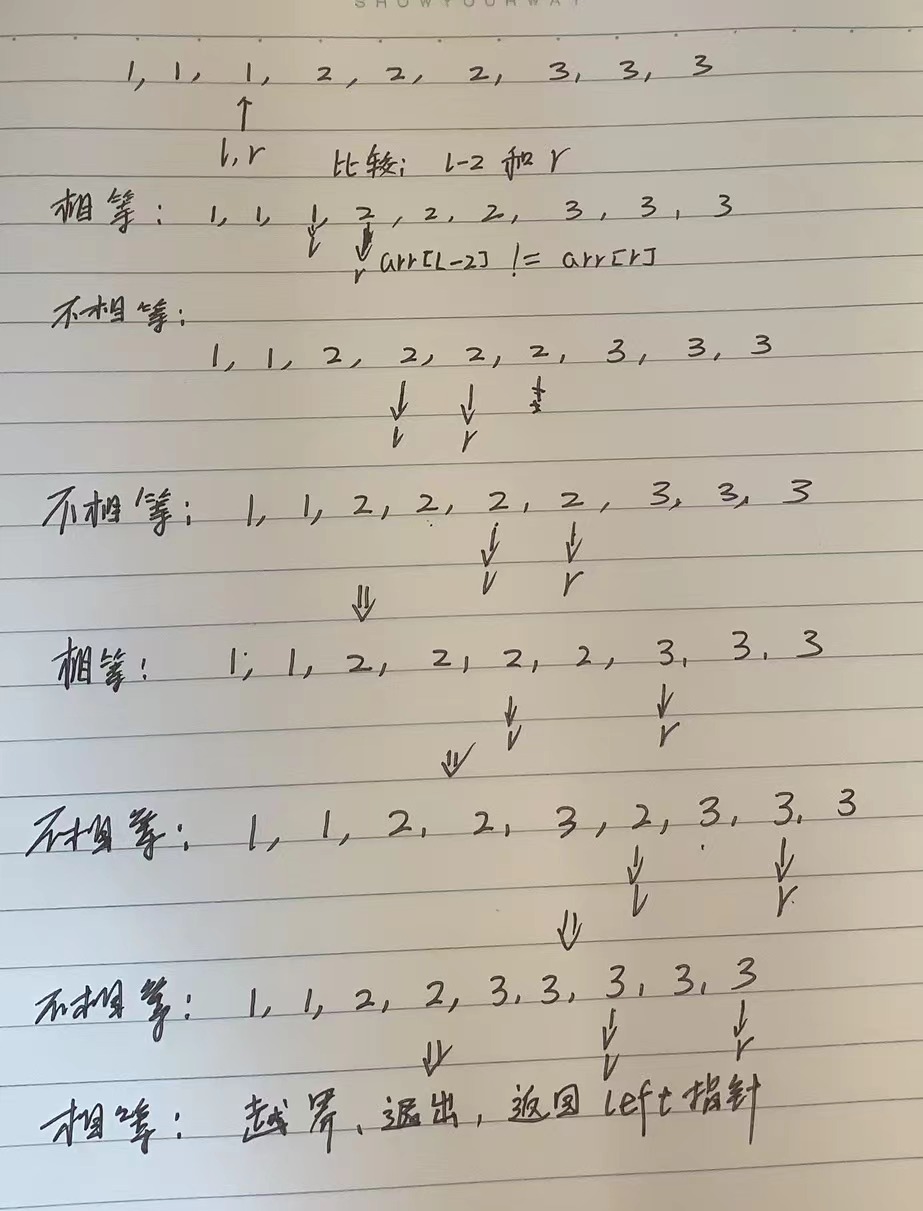 SHOWYOURWAY
1, 1, 1, 2, 2, 2, 3, 3, 3
l, r 比较: l-2 和 r
相等: 1, 1, 1, 2, 2, 2, 3, 3, 3
l r arr[L-2] != arr[r]
不相等:
1, 1, 2, 2, 2, 2, 3, 3, 3
l r
不相等: 1, 1, 2, 2, 2, 2, 3, 3, 3
l r
相等: 1, 1, 2, 2, 2, 2, 3, 3, 3
l r
不相等: 1, 1, 2, 2, 3, 2, 3, 3, 3
l r
不相等: 1, 1, 2, 2, 3, 3, 3, 3, 3
l r
相等: 越界、退出, 返回 left 指针